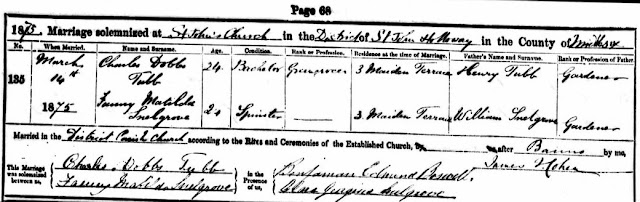 Page 68
1875. Marriage solemnized at St John's Church in the District of St John Holloway in the County of Middlesex
No. When Married. Name and Surname. Age. Condition. Rank or Profession. Residence at the time of Marriage. Father's Name and Surname. Rank or Profession of Father.
135 March 14th 1875 Charles Dobbs Tubb 24 Bachelor 3 Maiden Terrace Henry Tubb Gardener
Fanny Matilda Snelgrove 24 Spinster 3 Maiden Terrace William Snelgrove Gardener
Married in the District Parish Church according to the Rites and Ceremonies of the Established Church, by after Banns by me,
This Marriage was solemnized between us, Charles Dobbs Tubb Fanny Matilda Snelgrove in the Presence of us, Benjaman Edmund Snelgrove
James